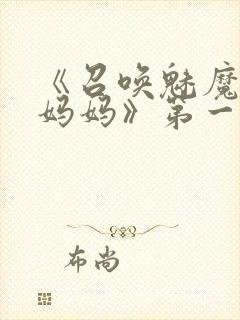 《召唤魅魔
妈妈》第一
布尚